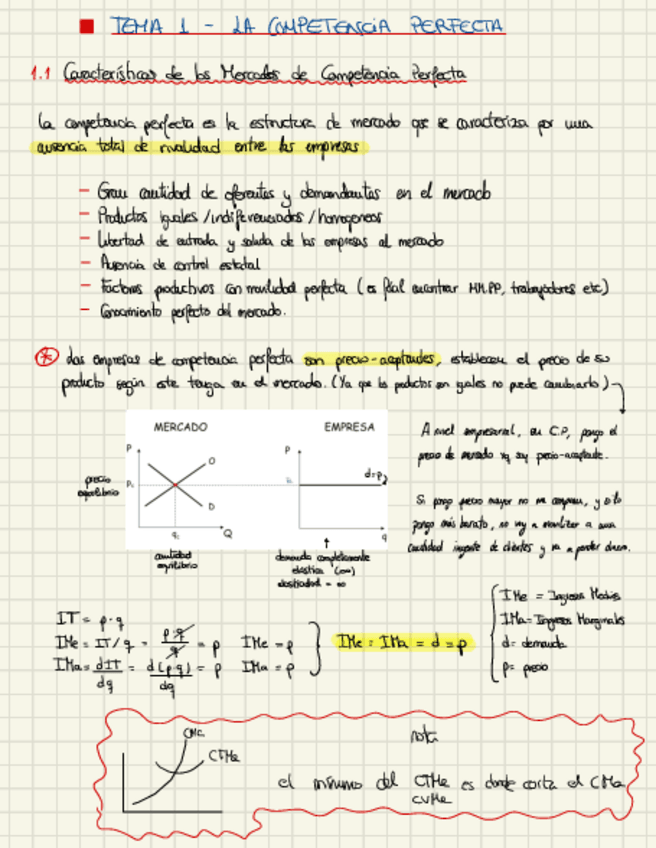 TEMA 1 - LA COMPETENCIA PERFECTA
1.1 Características de los Mercados de Competencia Perfecta
La competencia perfecta es la estructura de mercado que se caracteriza por una
ausencia total de rivalidad entre las empresas
- Gran cantidad de oferentes y demandantes en el mercado
- Productos iguales / indiferenciados / homogeneos
- Libertad de entrada y salida de las empresas al mercado
- Ausencia de control estatal
- Factores productivos con movilidad perfecta (es fácil encontrar MM.PP, trabajadores etc)
- Conocimiento perfecto del mercado.
* Las empresas de competencia perfecta son precio-aceptantes, establecen el precio de su
producto según este tenga en el mercado. (Ya que los productos son iguales no puede cambiarlo)
MERCADO
P
O
P₀
D
q₀
Q
precio
equilibrio
cantidad
equilibrio
EMPRESA
P
d=p₀
q
demanda completamente
elástica (∞)
elasticidad = ∞
A nivel empresarial, en C.P, pongo el
precio de mercado xq soy precio-aceptante.
Si pongo precio mayor no me compran, y si lo
pongo más barato, no voy a movilizar a una
cantidad ingente de clientes y va a perder dinero.
IT = p·q
IMe = IT/q = p·q/q = p IMe = p
IMa = dIT/dq = d(p·q)/dq = p IMa = p
IMe = IMa = d = p
IMe = Ingresos Medios
IMa = Ingresos Marginales
d = demanda
p = precio
CMa
CTMe
nota
el mínimo del CTMe es donde corta el CMa
CVMe